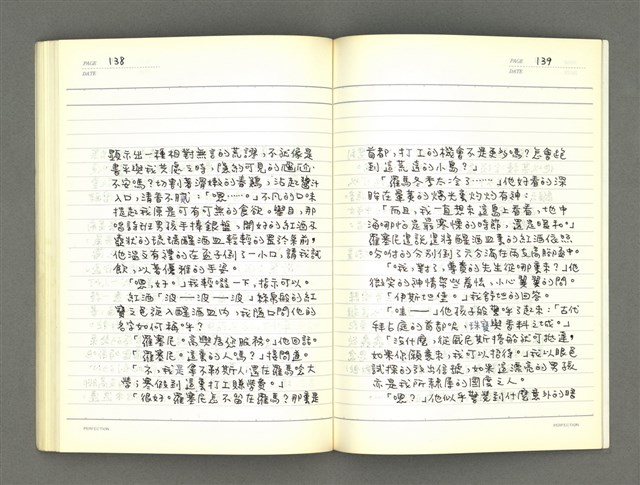 PAGE 138
DATE
顯示出一種相對無言的荒謬,不就像是
書采與我共處之時,隱約可見的
不安嗎?切割著滑嫩的香鵝,沾起醬汁
入口,清香不膩:「嗯……。」不凡的口味
提起我原是可有可無的食慾。舉目,那
唱詩班男孩手捧銀盤,開好的紅酒及
壺狀的琉璃醒酒皿輕輕的置於桌前,
他溫文有禮的在盃子倒了一小口,請我試
飲,以著優雅的手姿。
「嗯,好。」我輕啜一下,指示可以。
紅酒「波—波—波」絲帛般的紅
寶之色註入醒酒皿內,我隨口問他的
名字如何稱呼?
「羅塞尼。高興為您服務。」他回話。
「羅塞尼。這裏的人嗎?」接問道。
「不,我是拿不勒斯人,還在羅馬唸大
學;寒假到這裏打工賺學費。」
「很好。羅塞尼怎不留在羅馬?那裏是
PERFECTION
PAGE 139
DATE
首都,打工的機會不是更多嗎?怎會跑
到這荒遠的小島?」
「羅馬冬季太冷了……」他好看的深
眸在暈美的燭光裏灼灼有神:
「而且,我一直想來這島上看看,地中
海哪怕是最寒凍的時節,還是暖和。」
羅塞尼邊說邊將醒酒皿裏的紅酒依然
吩咐的分別倒了六分滿在兩支高腳盃中。
「我,對了,尊貴的先生從哪裏來?」他
微笑的神情有些羞怯,小心翼翼的問。
「伊斯坦堡。」我舒坦的回答。
「哇——」他孩子般驚呼了起來:「古代
拜占庭的首都呢,珠寶與香料之城。」
「沒什麼,從威尼斯搭船就可抵達,
如果你願意來,我可以招待。」我以眼色
試探的放出信號,如果這漂亮的男孩
亦是我所隸屬的國度之人。
「嗯?」他似乎驚覺到什麼意外的暗
PERFECTION